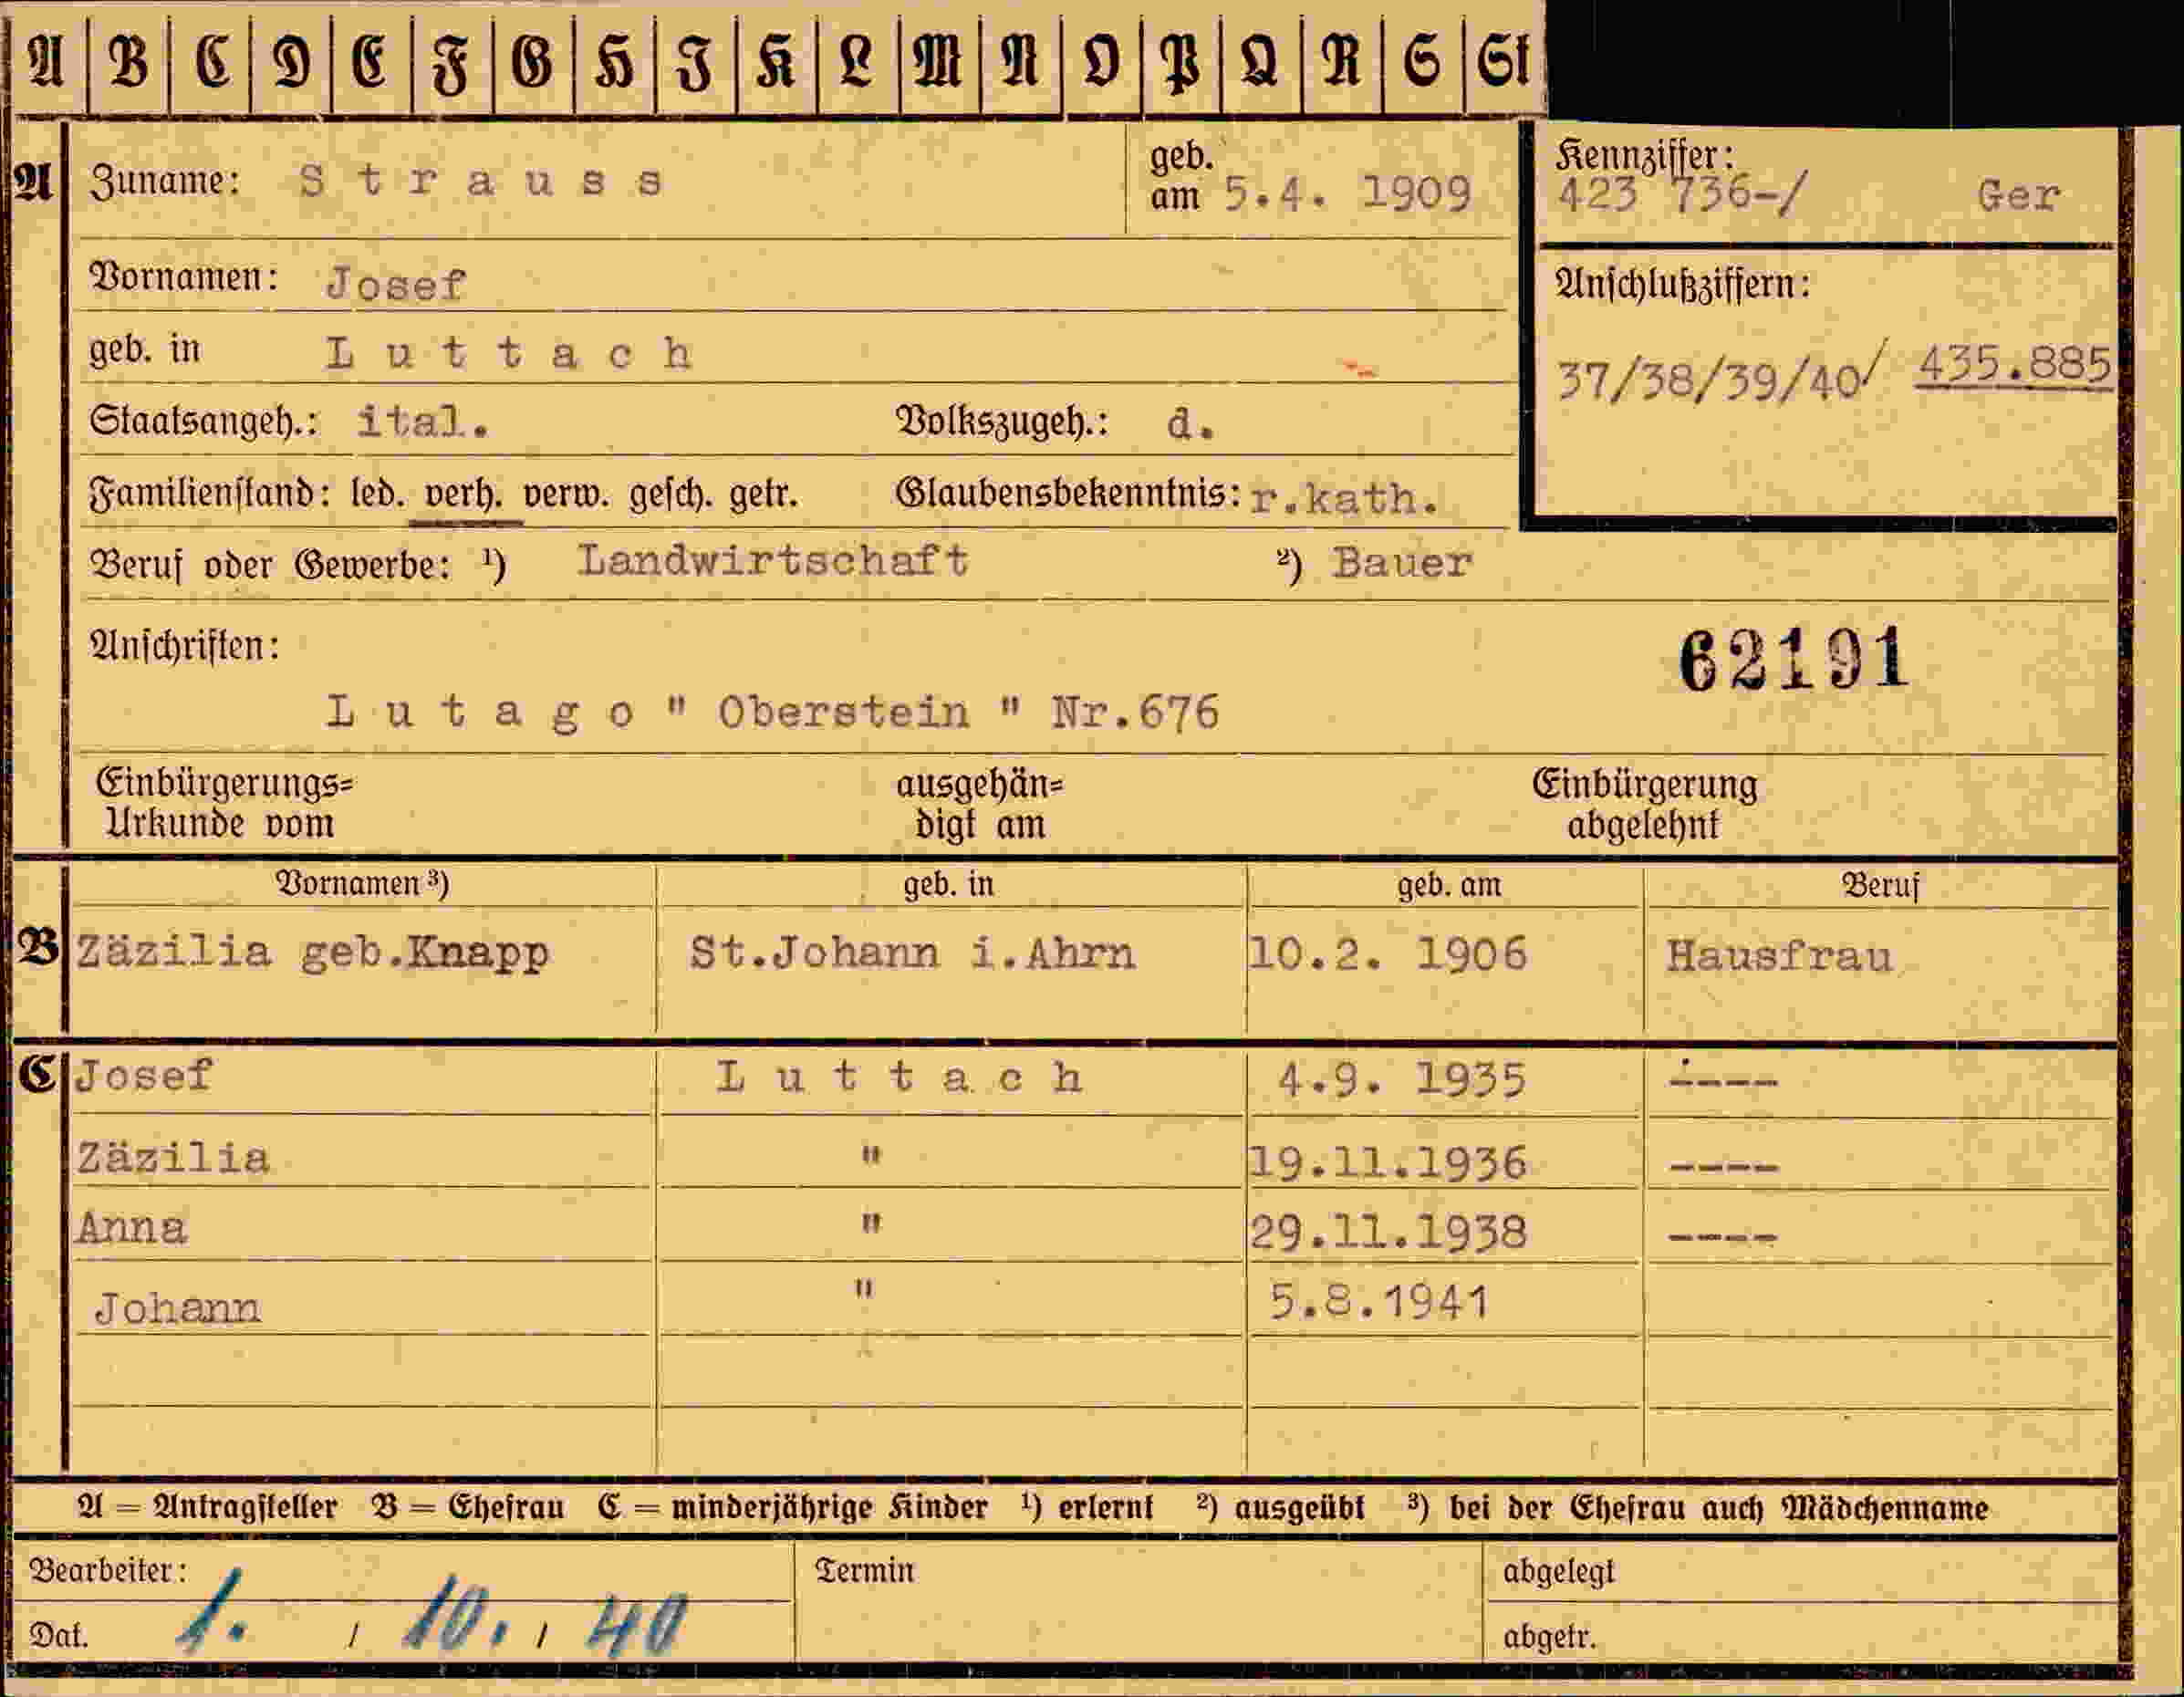 A B C D E F G H I K L M N O P Q R S St
A Zuname: Strauss geb. am 5.4. 1909
Kennziffer: 423 736-/ Ger
Vornamen: Josef
Anschlußziffern:
geb. in Luttach
37/38/39/40/ 435.885
Staatsangeh.: ital. Volkszugeh.: d.
Familienstand: led. verh. verw. gesch. getr. Glaubensbekenntnis: r.kath.
Beruf oder Gewerbe: ¹) Landwirtschaft ²) Bauer
Anschriften:
62191
Lutago " Oberstein " Nr.676
Einbürgerungs= ausgehän= Einbürgerung
Urkunde vom digt am abgelehnt
Vornamen ³) geb. in geb. am Beruf
B Zäzilia geb.Knapp St.Johann i.Ahrn 10.2. 1906 Hausfrau
C Josef Luttach 4.9. 1935 ----
Zäzilia " 19.11.1936 ----
Anna " 29.11.1938 ----
Johann " 5.8.1941
A = Antragsteller B = Ehefrau C = minderjährige Kinder ¹) erlernt ²) ausgeübt ³) bei der Ehefrau auch Mädchenname
Bearbeiter: Termin abgelegt
Dat. 1. / 10. / 40 abgetr.